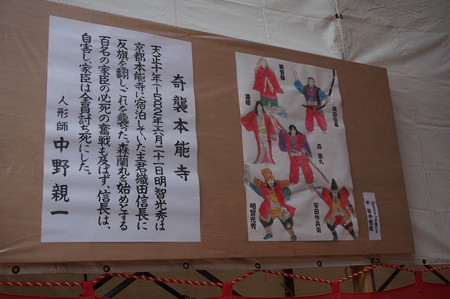 奇襲本能寺
天正十年(一五八二)六月二十一日明智光秀は
京都本能寺に宿泊していた主君織田信長に
反旗を翻しこれを襲った。森蘭丸を始めとする
百名の家臣の必死の奮戦も及ばず、信長は、
自害し家臣は全員討ち死にした。
人形師 中野親一
濃姫
森蘭丸
安田作兵衛
明智光秀